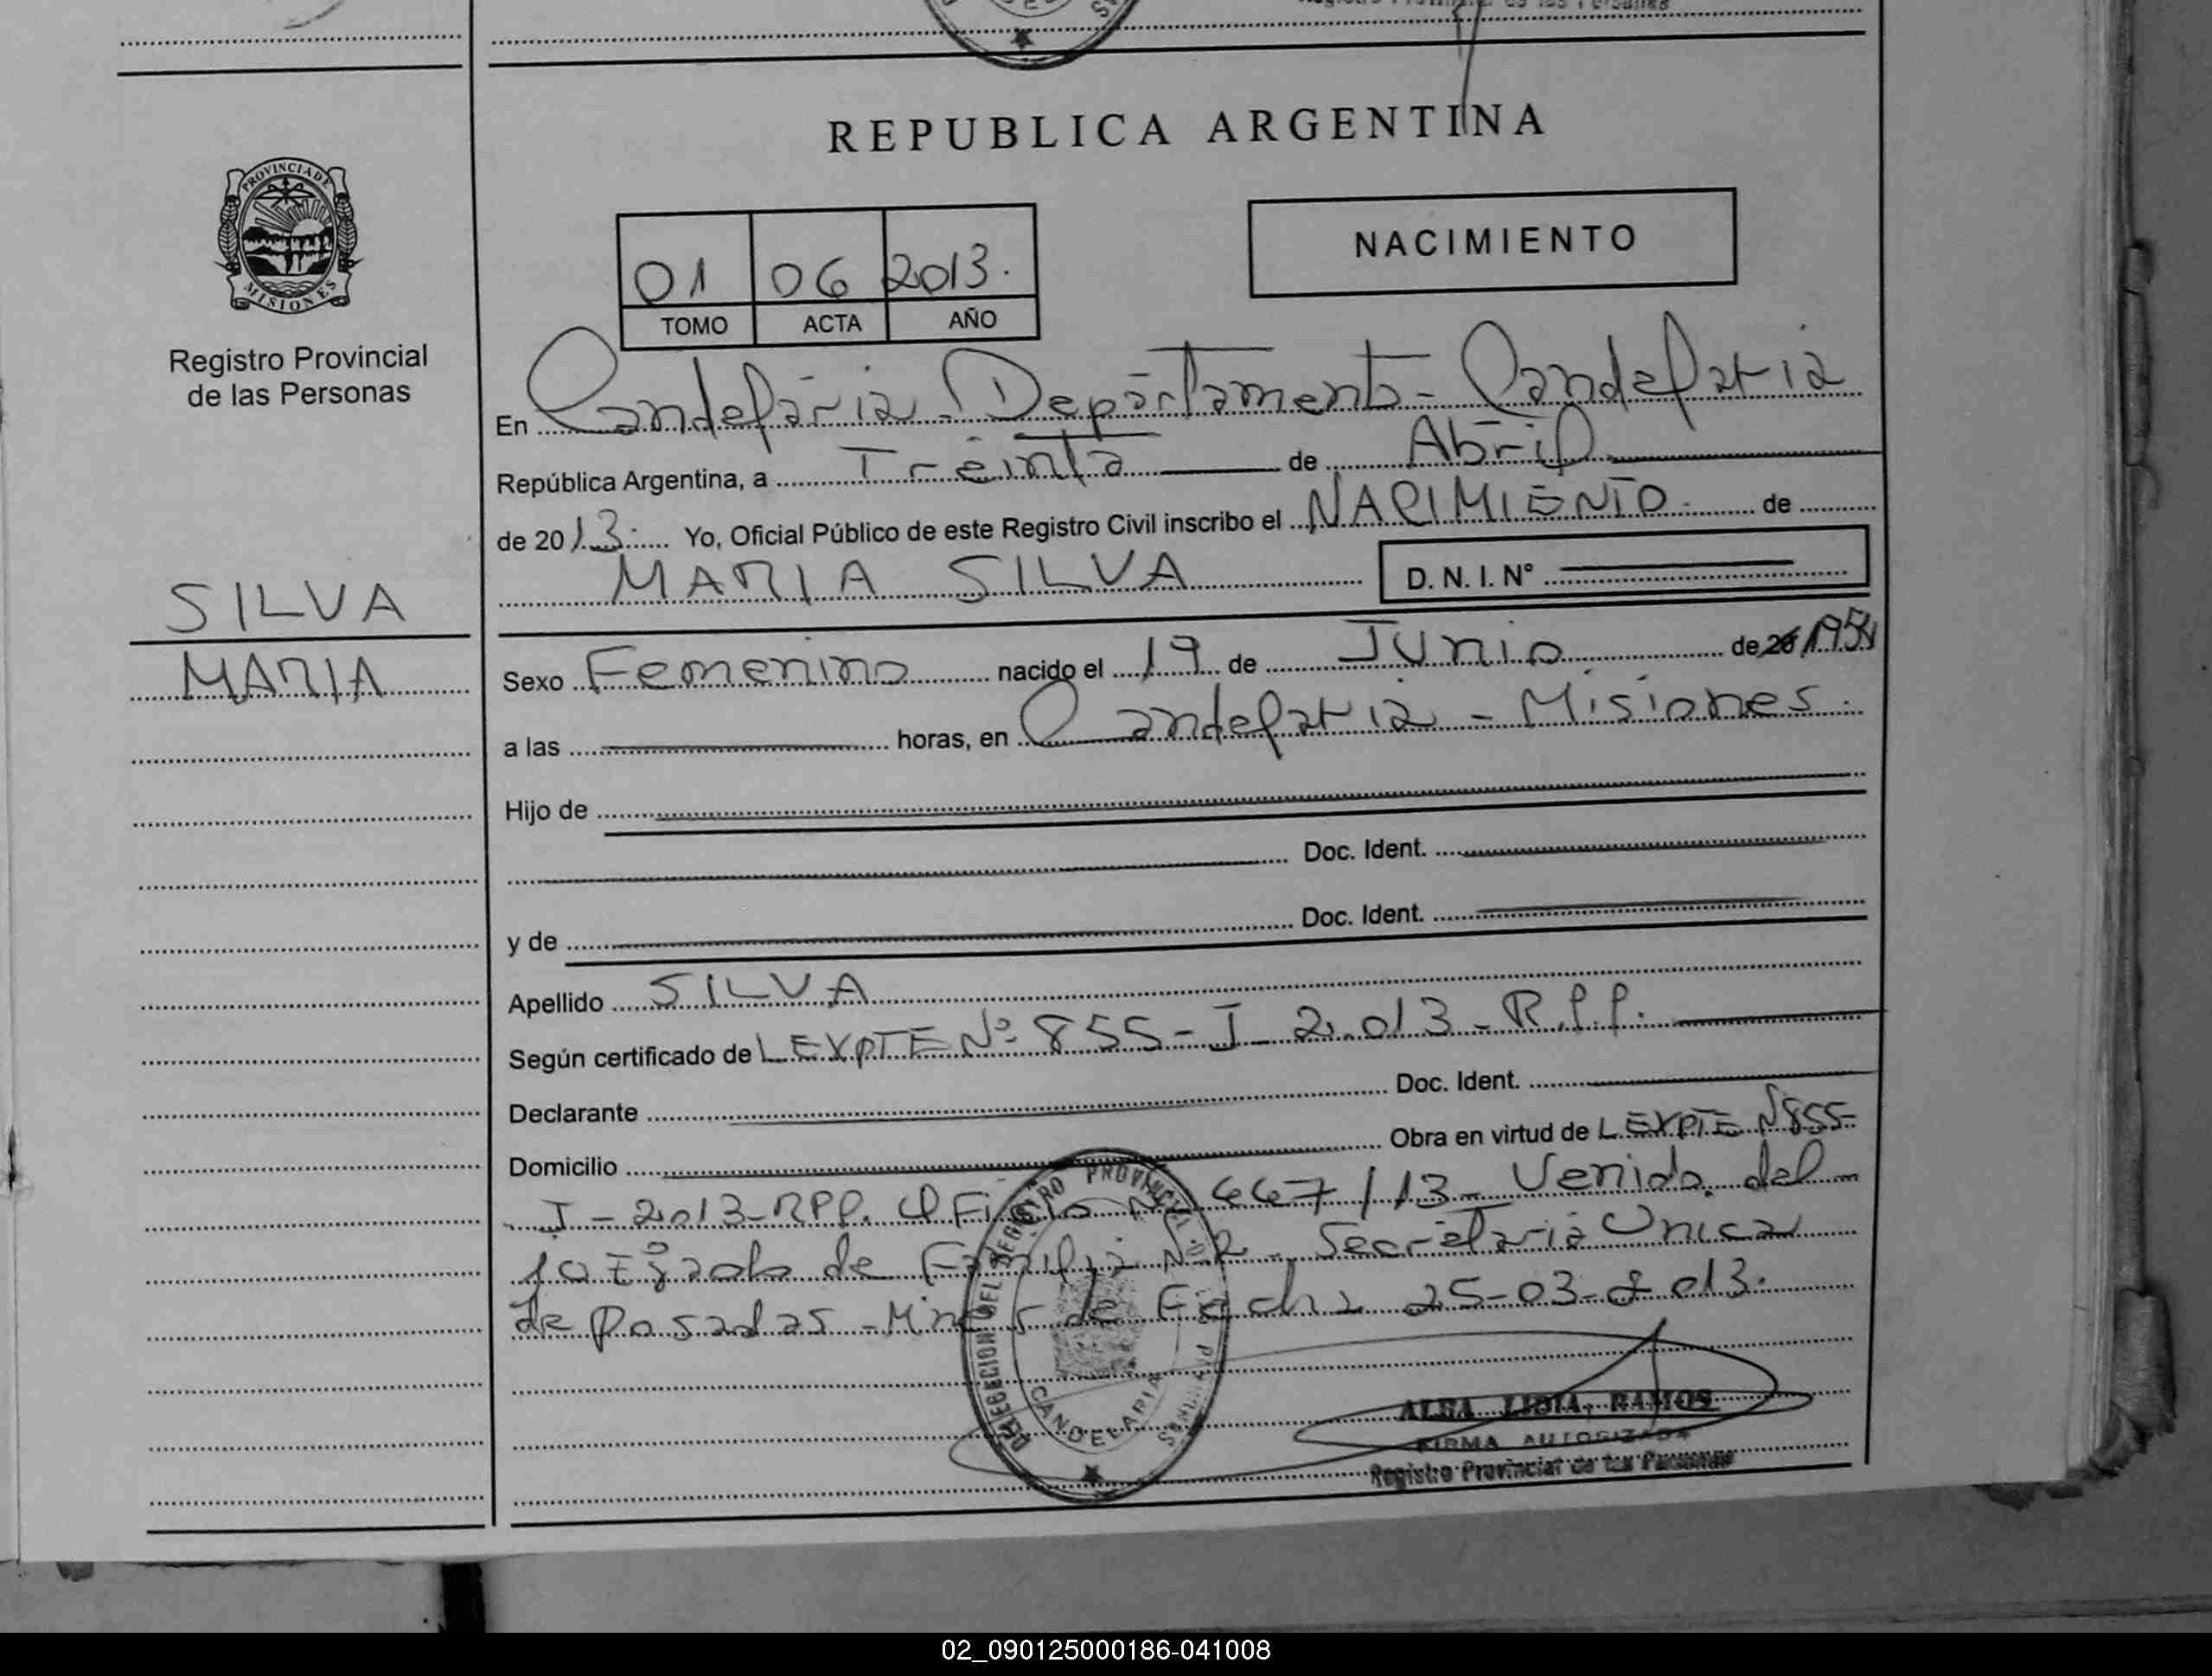 REPUBLICA ARGENTINA
PROVINCIA DE
MISIONES
Registro Provincial
de las Personas
NACIMIENTO
01 06 2013.
TOMO ACTA AÑO
En Candelaria - Departamento - Candelaria
República Argentina, a Treinta de Abril
de 2013. Yo, Oficial Público de este Registro Civil inscribo el NACIMIENTO de
MARIA SILVA D. N. I. N°
SILVA
MARIA
Sexo Femenino nacido el 19 de Junio de 20 1954
a las horas, en Candelaria - Misiones.
Hijo de
Doc. Ident.
y de Doc. Ident.
Apellido SILVA
Según certificado de L EXPTE Nº 855 - I - 2.013 - R.P.P.
Declarante Doc. Ident.
Domicilio Obra en virtud de L EXPTE Nº 855-
I - 2.013 - RPP. Oficio Nº 447/13 - Venido del
Juzgado de Familia Nº 2 - Secretaria Unica
de Posadas - Mnes de Fecha 25-03-2013.
DELEGACION DEL REGISTRO PROVINCIAL DE LAS PERSONAS
CANDELARIA
ALBA LIDIA RAMOS
FIRMA AUTORIZADA
Registro Provincial de las Personas
02_090125000186-041008